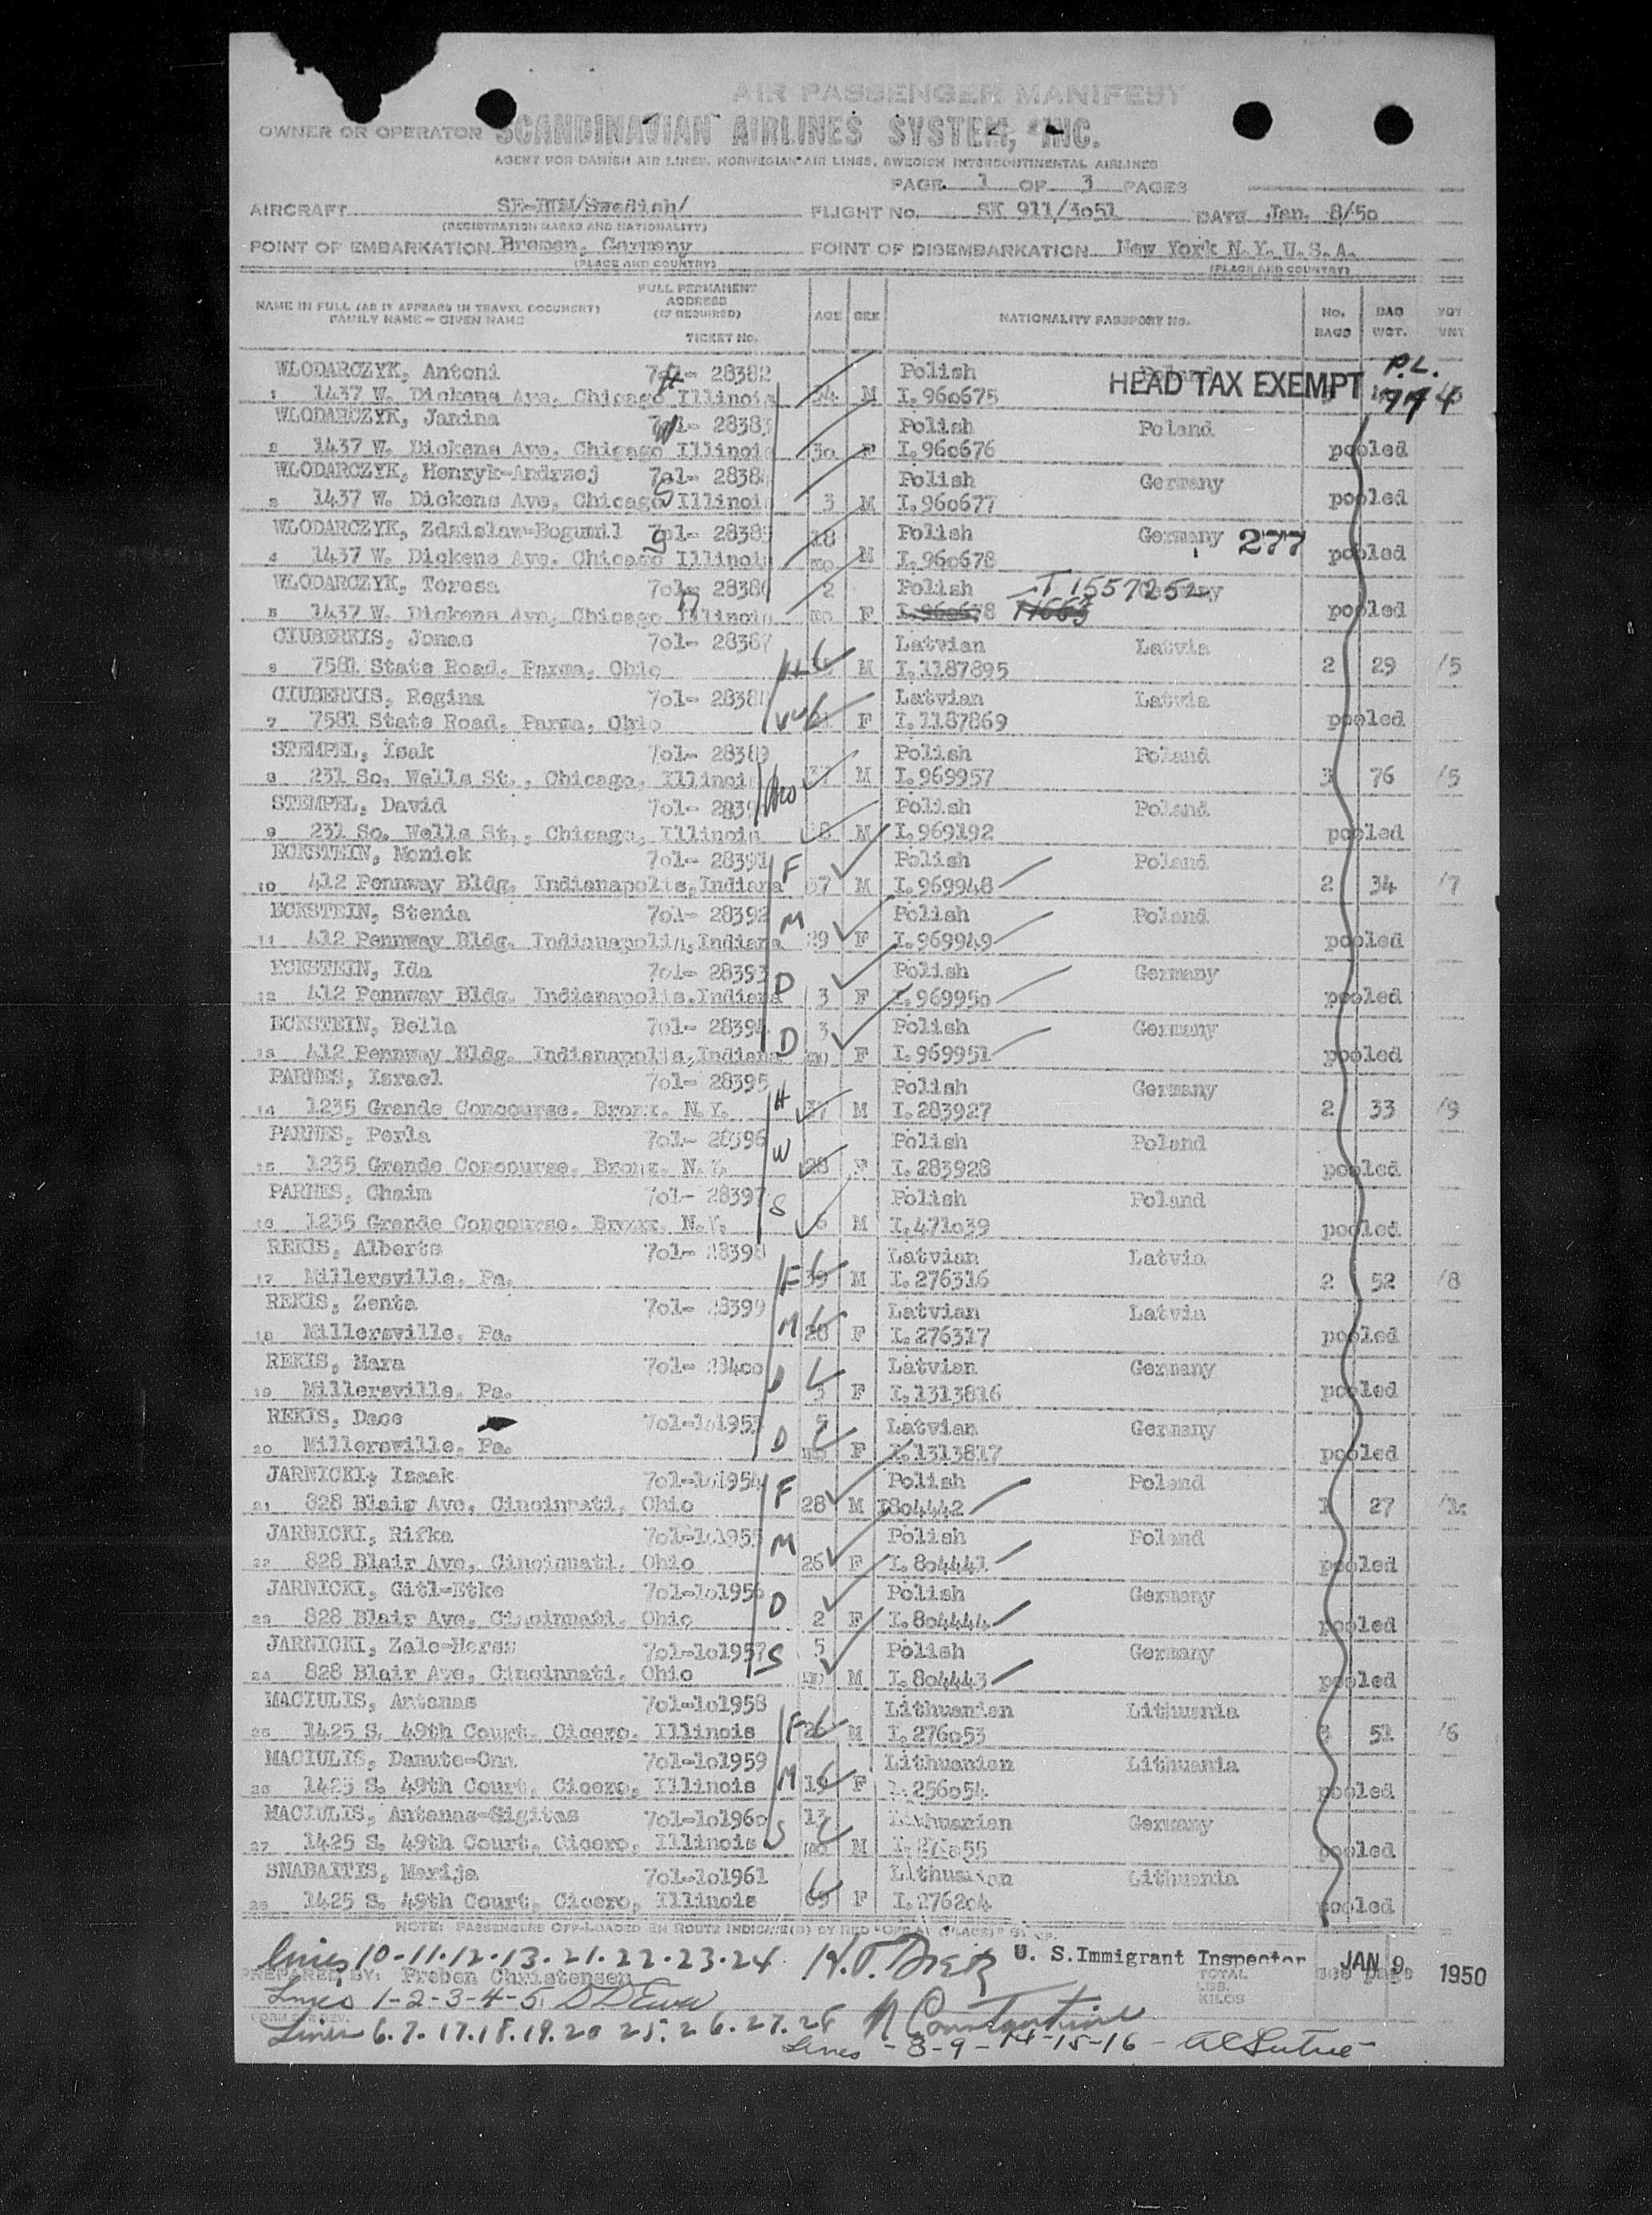 AIR PASSENGER MANIFEST
OWNER OR OPERATOR SCANDINAVIAN AIRLINES SYSTEM, INC.
AGENT FOR DANISH AIR LINES, NORWEGIAN AIR LINES, SWEDISH INTERCONTINENTAL AIRLINES
PAGE 1 OF 3 PAGES
AIRCRAFT /Swedish/ FLIGHT No. SK 911/3o51 DATE Jan. 8/5o
(REGISTRATION MARKS AND NATIONALITY)
POINT OF EMBARKATION Bremen, Germany POINT OF DISEMBARKATION New York N.Y. U.S.A.
(PLACE AND COUNTRY) (PLACE AND COUNTRY)
NAME IN FULL (AS IT APPEARS IN TRAVEL DOCUMENT) FAMILY NAME - GIVEN NAME FULL PERMANENT ADDRESS (IF REQUIRED) TICKET No. AGE SEX NATIONALITY PASSPORT No. No. BAGS BAG WGT.
WLODARCZYK, Antoni 7o1- 28382 Polish P.L.
1 1437 W. Dickens Ave, Chicago Illinois 34 M I.96o675 HEAD TAX EXEMPT 774
WLODARCZYK, Janina W Polish Poland
2 1437 W. Dickens Ave, Chicago Illinois 3o F I.96o676 pooled
WLODARCZYK, Henryk-Andrzej S Polish Germany
3 1437 W. Dickens Ave, Chicago Illinois 3 M I.96o677 pooled
WLODARCZYK, Zdzislaw-Bogumil 18 Polish Germany 277
4 1437 W. Dickens Ave, Chicago Illinois mo M I.96o678 pooled
WLODARCZYK, Teresa 2 Polish T 1557252
5 1437 W. Dickens Ave, Chicago Illinois mo F pooled
CIUBERKIS, Jonas 7o1- 28387 Latvian Latvia
6 7581 State Road, Parma, Ohio M I.1187895 2 29 /5
CIUBERKIS, Regina Latvian Latvia
7 7581 State Road, Parma, Ohio F I.1187869 pooled
STEMPEL, Isak 7o1- 28389 Polish Poland
8 231 So. Wells St., Chicago, Illinois 37 M I.969957 3 76 /5
STEMPEL, David Polish Poland
9 231 So. Wells St., Chicago, Illinois M I.969192 pooled
ECKSTEIN, Moniek 7o1- 28391 F Polish Poland
10 412 Pennway Bldg. Indianapolis,Indiana 37 M I.969948 2 34 /7
ECKSTEIN, Stenia 7o1- 28392 M Polish Poland
11 412 Pennway Bldg. Indianapolis,Indiana 29 F I.969949 pooled
ECKSTEIN, Ida 7o1- 28393 D Polish Germany
12 412 Pennway Bldg. Indianapolis,Indiana 3 F I.96995o pooled
ECKSTEIN, Bella 7o1- 28394 D 3 Polish Germany
13 412 Pennway Bldg. Indianapolis,Indiana mo F I.969951 pooled
PARNES, Israel 7o1- 28395 H Polish Germany
14 1235 Grande Concourse, Bronx, N.Y. 37 M I.283927 2 33 /9
PARNES, Perla 7o1- 28396 W Polish Poland
15 1235 Grande Concourse, Bronx, N.Y. 28 F I.283928 pooled
PARNES, Chaim 7o1- 28397 S Polish Poland
16 1235 Grande Concourse, Bronx, N.Y. 6 M I.471o39 pooled
REKIS, Alberts 7o1- 28398 F Latvian Latvia
17 Millersville, Pa. 39 M I.276316 2 52 /8
REKIS, Zenta 7o1- 28399 M Latvian Latvia
18 Millersville, Pa. 28 F I.276317 pooled
REKIS, Mara 7o1- 284oo D Latvian Germany
19 Millersville, Pa. 3 F I.1313816 pooled
REKIS, Dace 7o1-1o1953 D Latvian Germany
20 Millersville, Pa. mo F I.1313817 pooled
JARNICKI, Isaak 7o1-1o1954 F Polish Poland
21 828 Blair Ave, Cincinnati, Ohio 28 M I8o4442 1 27
JARNICKI, Rifka 7o1-1o1955 M Polish Poland
22 828 Blair Ave, Cincinnati, Ohio 26 F I.8o4441 pooled
JARNICKI, Gitl-Etke 7o1-1o1956 D Polish Germany
23 828 Blair Ave, Cincinnati, Ohio 2 F I.8o4444 pooled
JARNICKI, Zalc-Herss 7o1-1o1957 S 5 Polish Germany
24 828 Blair Ave, Cincinnati, Ohio mo M I.8o4443 pooled
MACIULIS, Antanas 7o1-1o1958 F Lithuanian Lithuania
25 1425 S. 49th Court, Cicero, Illinois 26 M I.276o53 3 51 /6
MACIULIS, Danute-Ona 7o1-1o1959 M Lithuanian Lithuania
26 1425 S. 49th Court, Cicero, Illinois 19 F 256o54 pooled
MACIULIS, Antanas-Sigitas 7o1-1o196o S 13 Lithuanian Germany
27 1425 S. 49th Court, Cicero, Illinois M pooled
SNABAITIS, Marija 7o1-1o1961 Lithuanian Lithuania
28 1425 S. 49th Court, Cicero, Illinois 69 F I.2762o4 pooled
NOTE: PASSENGERS OFF-LOADED EN ROUTE INDICATE(D) BY RED
lines 10-11-12-13-21-22-23-24 U. S. Immigrant Inspector JAN 9 1950
PREPARED BY: Preben Christensen TOTAL LBS. KILOS see page
Lines 1-2-3-4-5
Lines 6.7.17.18.19.20 25.26.27.28 N Constantine
Lines -8-9-14-15-16-